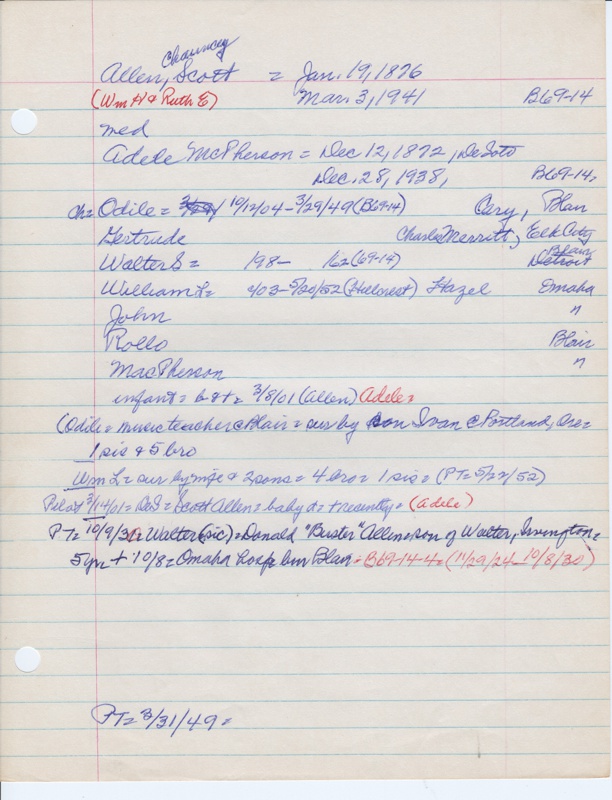 Chauncey
Allen, Scott = Jan. 19, 1876
(Wm H & Ruth E) Mar. 3, 1941 B69-14
med
Adele McPherson = Dec 12, 1872, DeSoto
Dec. 28, 1938, B69-14.
ch= Odile = 10/12/04 - 3/29/49 (B69-14) Cery, Blair
Gertrude Charles Merritt, Elk City
Blair
Walter S = 198- 162 (69-14) Detroit
William L = 5/20/52 (Hillcrest) Hazel Omaha
John "
Rollo Blair
MacPherson "
infant = b & t = 3/8/01 (Allen) Adele =
(Odile = music teacher @ Blair = sur by son Ivan @ Portland, Ore =
1 sis & 5 bro
Wm L = sur by wife & 2 sons = 4 bro = 1 sis = (PT = 5/22/52)
Pilot 3/14/01 = DeS = Scott Allen = baby d = t recently = (Adele)
PT = 10/9/30 = Walter (sic) = Donald "Buster" Allen = son of Walter, Irvington =
5 yr + 10/8 = Omaha hosp brn Blair = B69-14-4 = (11/29/24 - 10/8/30)
PT = 3/31/49 =